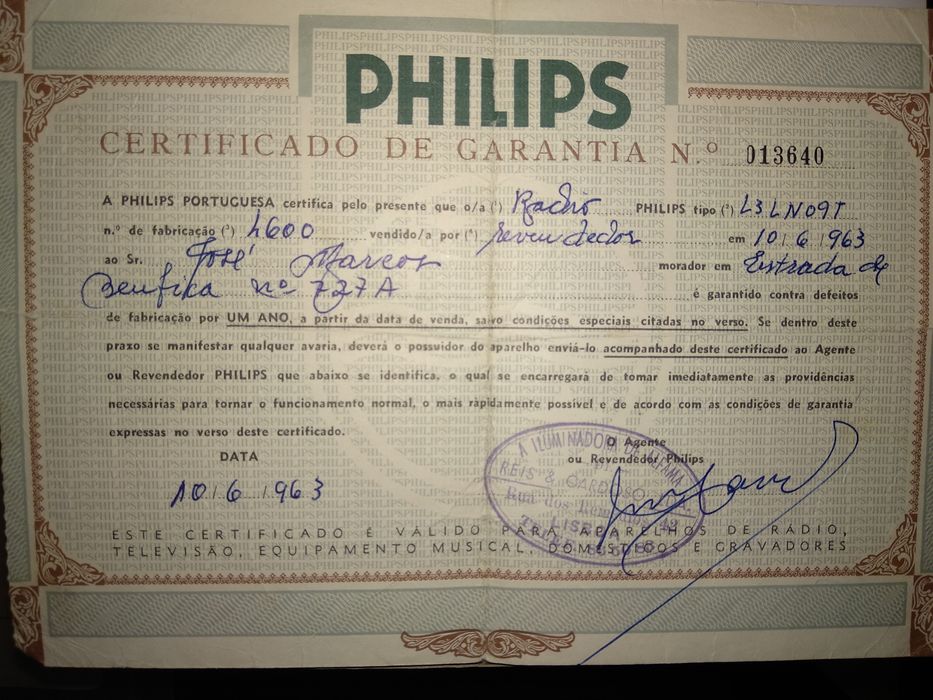 PHILIPS
CERTIFICADO DE GARANTIA N.º 013640
A PHILIPS PORTUGUESA certifica pelo presente que o/a (¹) Rádio PHILIPS tipo (²) L3LN09T
n.º de fabricação (³) 4600 vendido/a por (⁴) revendedor em 10/6/1963
ao Sr. José Marcos morador em Estrada de
Benfica nº 727A é garantido contra defeitos
de fabricação por UM ANO, a partir da data de venda, salvo condições especiais citadas no verso. Se dentro deste
prazo se manifestar qualquer avaria, deverá o possuidor do aparelho enviá-lo acompanhado deste certificado ao Agente
ou Revendedor PHILIPS que abaixo se identifica, o qual se encarregará de tomar imediatamente as providências
necessárias para tornar o funcionamento normal, o mais ràpidamente possível e de acordo com as condições de garantia
expressas no verso deste certificado.
DATA
10/6/1963
O Agente
ou Revendedor Philips
A ILUMINADORA DE ALFAMA
REIS & CARDOSO
Rua dos Remédios
ESTE CERTIFICADO É VÁLIDO PARA APARELHOS DE RÁDIO,
TELEVISÃO, EQUIPAMENTO MUSICAL, DOMÉSTICOS E GRAVADORES